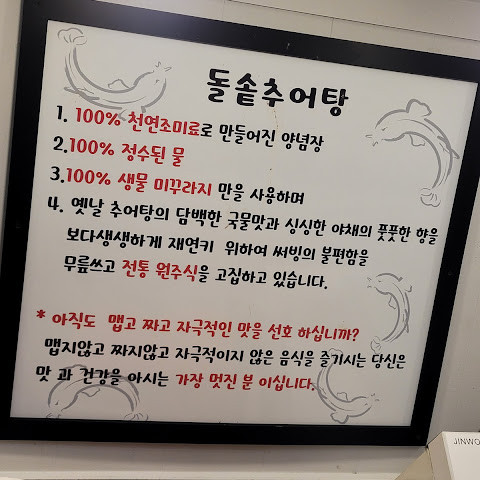 돌솥추어탕
1. 100% 천연조미료로 만들어진 양념장
2.100% 정수된 물
3.100% 생물 미꾸라지 만을 사용하며
4. 옛날 추어탕의 담백한 국물맛과 싱싱한 야채의 풋풋한 향을
보다생생하게 재연키 위하여 써빙의 불편함을
무릎쓰고 전통 원주식을 고집하고 있습니다.
* 아직도 맵고 짜고 자극적인 맛을 선호 하십니까?
맵지않고 짜지않고 자극적이지 않은 음식을 즐기시는 당신은
맛 과 건강을 아시는 가장 멋진 분 이십니다.
JINWO